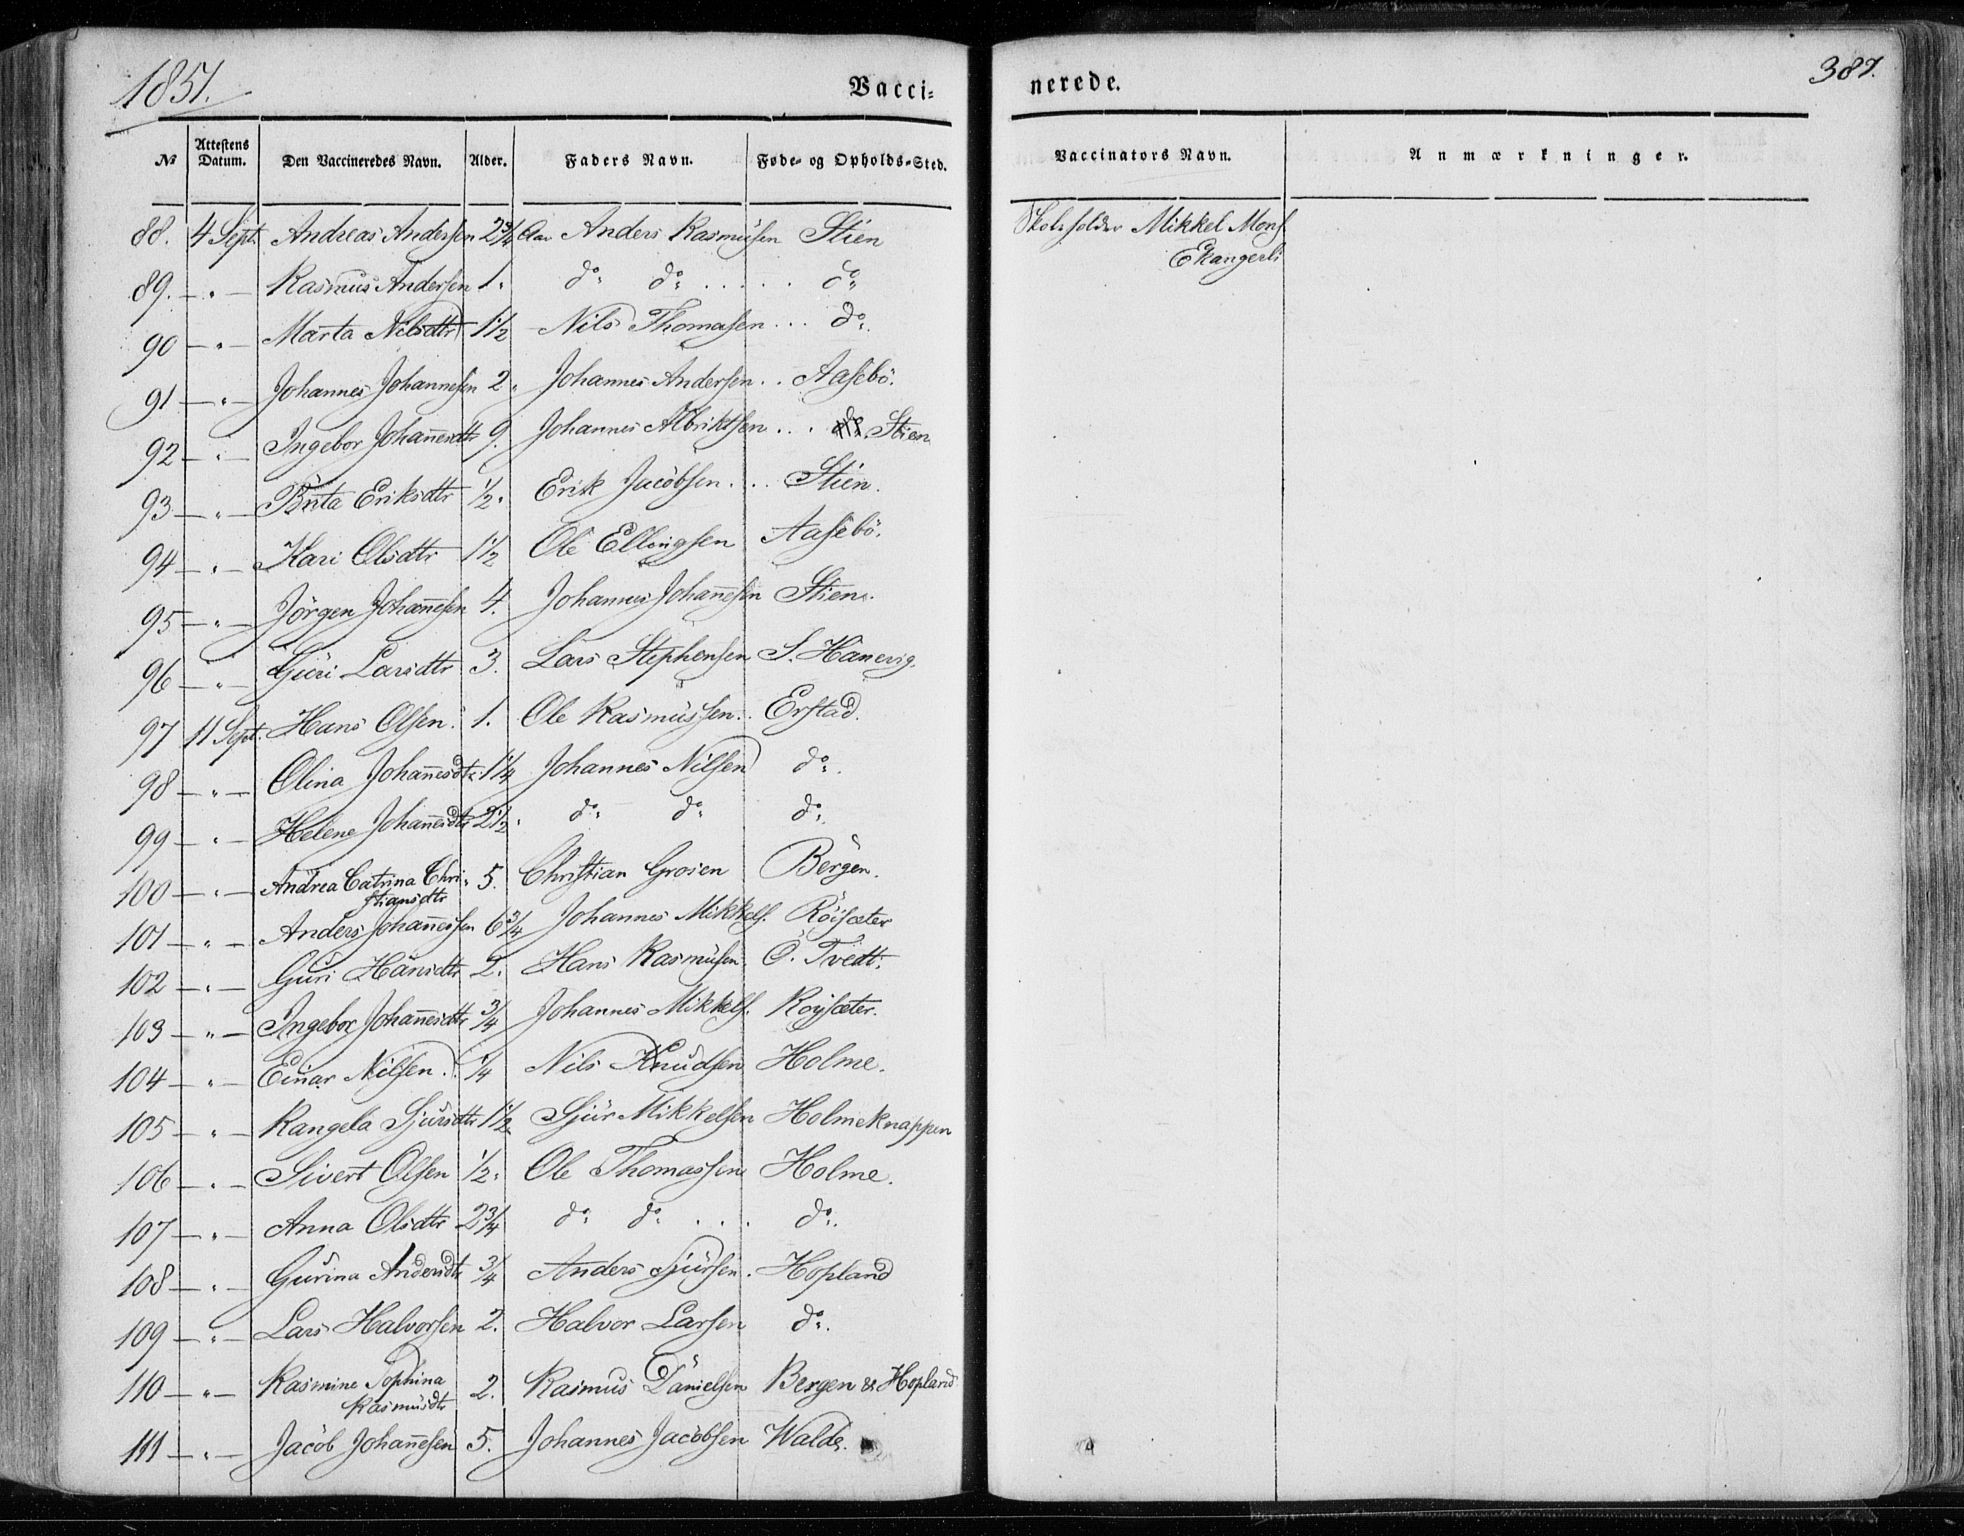 1851.
Vacci=
nerede.
387.
No Attestens Datum. Den Vaccineredes Navn. Alder. Faders Navn. Føde= og Opholds=Sted. Vaccinators Navn. Anmærkninger.
88. 4 Sept. Andreas Andersen 2 3/4 Aar Anders Rasmusen Stien Skoleholder Mikkel Mons
Ekangerli
89. — " — Rasmus Andersen 1. do do ..... do
90 — " — Marta Nilsdtr 1 1/2 Nils Thomasen ... do.
91 — " — Johannes Johannesen 2. Johannes Andersen .. Aasebö.
92 — " — Ingebor Johannesdtr 9. Johannes Albriktsen ... Stien
93 — " — Brita Eriksdtr 1/2. Erik Jacobsen ... Stien.
94 — " — Kari Olsdtr 1 1/2 Ole Ellingsen Aasebö.
95 — " — Jörgen Johannesen 4. Johannes Johannesen Stien.
96 — " — Guri Larsdtr 3. Lars Stephensen S. Hanevig.
97 11 Sept. Hans Olsen. 1. Ole Rasmussen. Erstad.
98 — " — Olina Johannesdtr 1 1/4 Johannes Nilsen do.
99 — " — Helene Johannesdtr 2 1/2. do do do.
100 — " — Andrea Catrina Chri= 5. Christian Grosen Bergen.
stiansdtr
101 — " — Anders Johannessen 6 3/4 Johannes Mikkels. Röisæter
102 — " — Guri Hansdtr 2. Hans Rasmusen O. Tvedt.
103 — " — Ingebor Johannesdtr 3/4 Johannes Mikkels. Röysæter.
104 — " — Einar Nilsen. 1/4 Nils Knudsen Holme.
105 — " — Rangela Sjursdtr 1 1/2 Sjur Mikkelsen Holmeknappen
106 — " — Sivert Olsen 1/2. Ole Thomassen Holme.
107 — " — Anna Olsdtr 2 3/4 do do ... do.
108 — " — Gurina Andersdtr 3/4 Anders Sjursen. Hopland
109 — " — Lars Halvorsen 2. Halvor Larsen do.
110 — " — Rasmine Sophina 2. Rasmus Danielsen Bergen & Hopland
Rasmusdtr
111 — " — Jacob Johannesen 5. Johannes Jacobsen Walde.